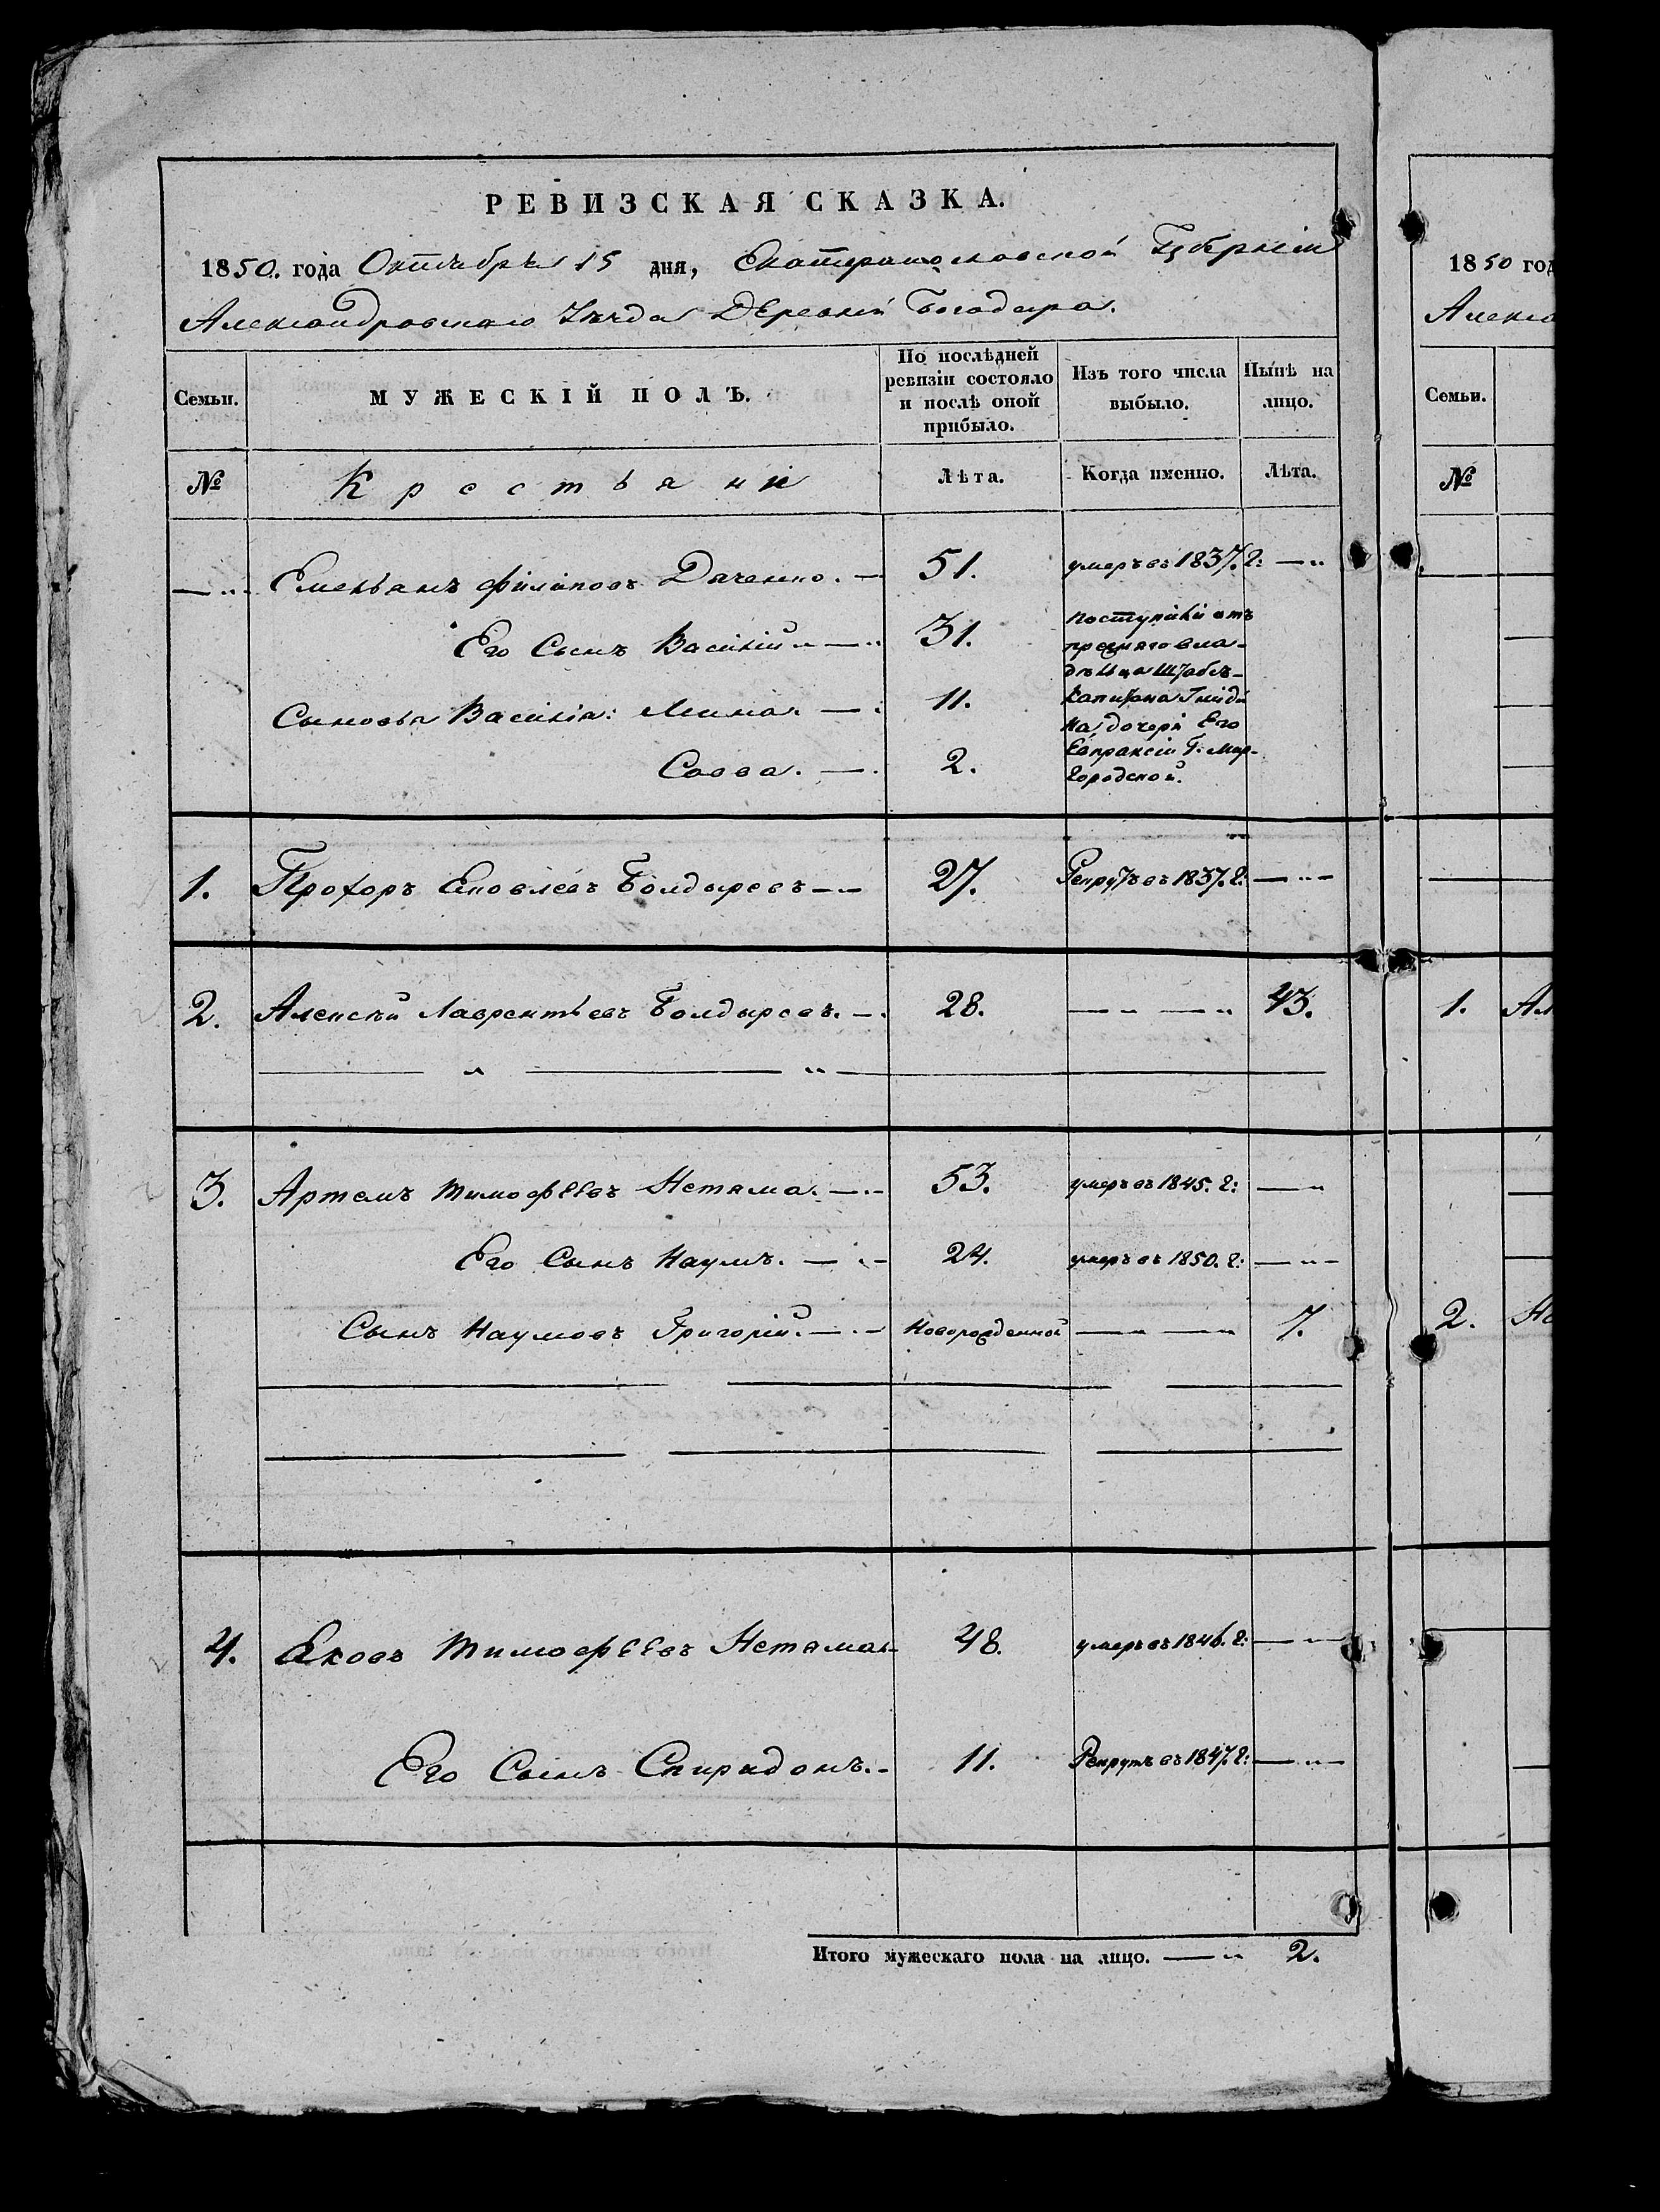 РЕВИЗСКАЯ СКАЗКА.
1850. года Октября 15 дня, Екатеринославской Губерніи
Александровскаго Уѣзда Деревни Богодара.
Семьи.
МУЖЕСКІЙ ПОЛЪ.
По послѣдней ревизіи состояло и послѣ оной прибыло.
Изъ того числа выбыло.
Нынѣ на лицо.
№
Крестьяни
Лѣта.
Когда именно.
Лѣта.
— „ Емельянъ Филиповъ Даченко. — 51. умеръ въ 1837. г: — „
Его Сынъ Василій — „ 31.
Сыновья Василія: Мина. — 11.
Савва. — 2.
поступили отъ
прежняго вла-
дѣльца Штабсъ-
Капитана Гнѣди
на дочери Его
Евпраксіи Г. Мир-
городской.
1. Прохоръ Ековлевъ Болдыревъ — „ 27. Рекрутъ въ 1837. г: — „ —
2. Алексѣй Лаврентьевъ Болдыревъ. — 28. — „ — „ 43.
— „ — „ —
3. Артемъ Тимофѣевъ Нетяма. — „ 53. умеръ въ 1845. г: — „
Его Сынъ Наумъ. — „ 24. умеръ въ 1850. г: — „ —
Сынъ Наумовъ Григорій. — „ Новорожденной — „ — „ 7.
4. Ековъ Тимофѣевъ Нетяма 48. умеръ въ 1846. г: — „
Его Сынъ Спиридонъ. — 11. Рекрутъ въ 1847. г: — „ —
Итого мужескаго пола на лицо. — „ 2.
1850 год
Алекса
Семьи.
№
1. Ал
2. Не